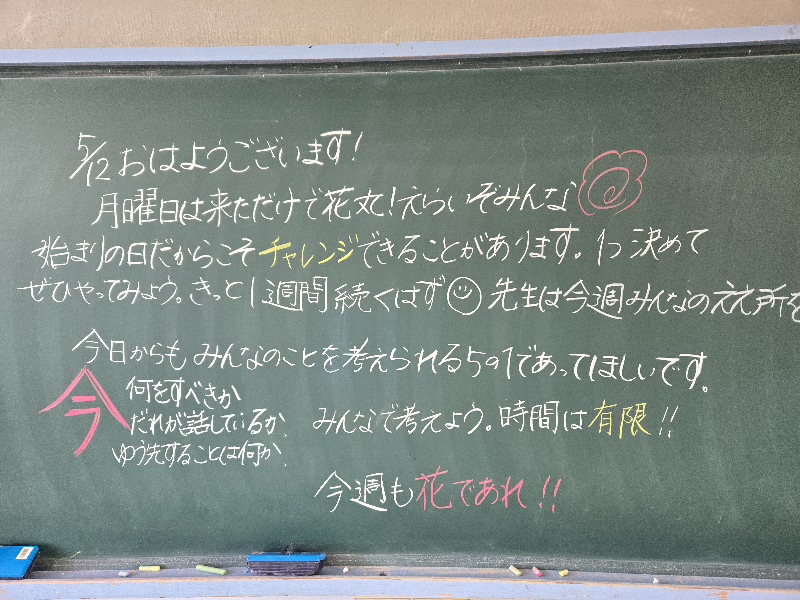 5/12 おはようございます!
月曜日は来ただけで花丸!えらいぞみんな
始まりの日だからこそチャレンジできることがあります。1つ決めて
ぜひやってみよう。きっと1週間続くはず 先生は今週みんなのええ所を
今日からもみんなのことを考えられる5の1であってほしいです。
今
何をすべきか
だれが話しているか
ゆう先することは何か
みんなで考えよう。時間は有限!!
今週も花であれ!!